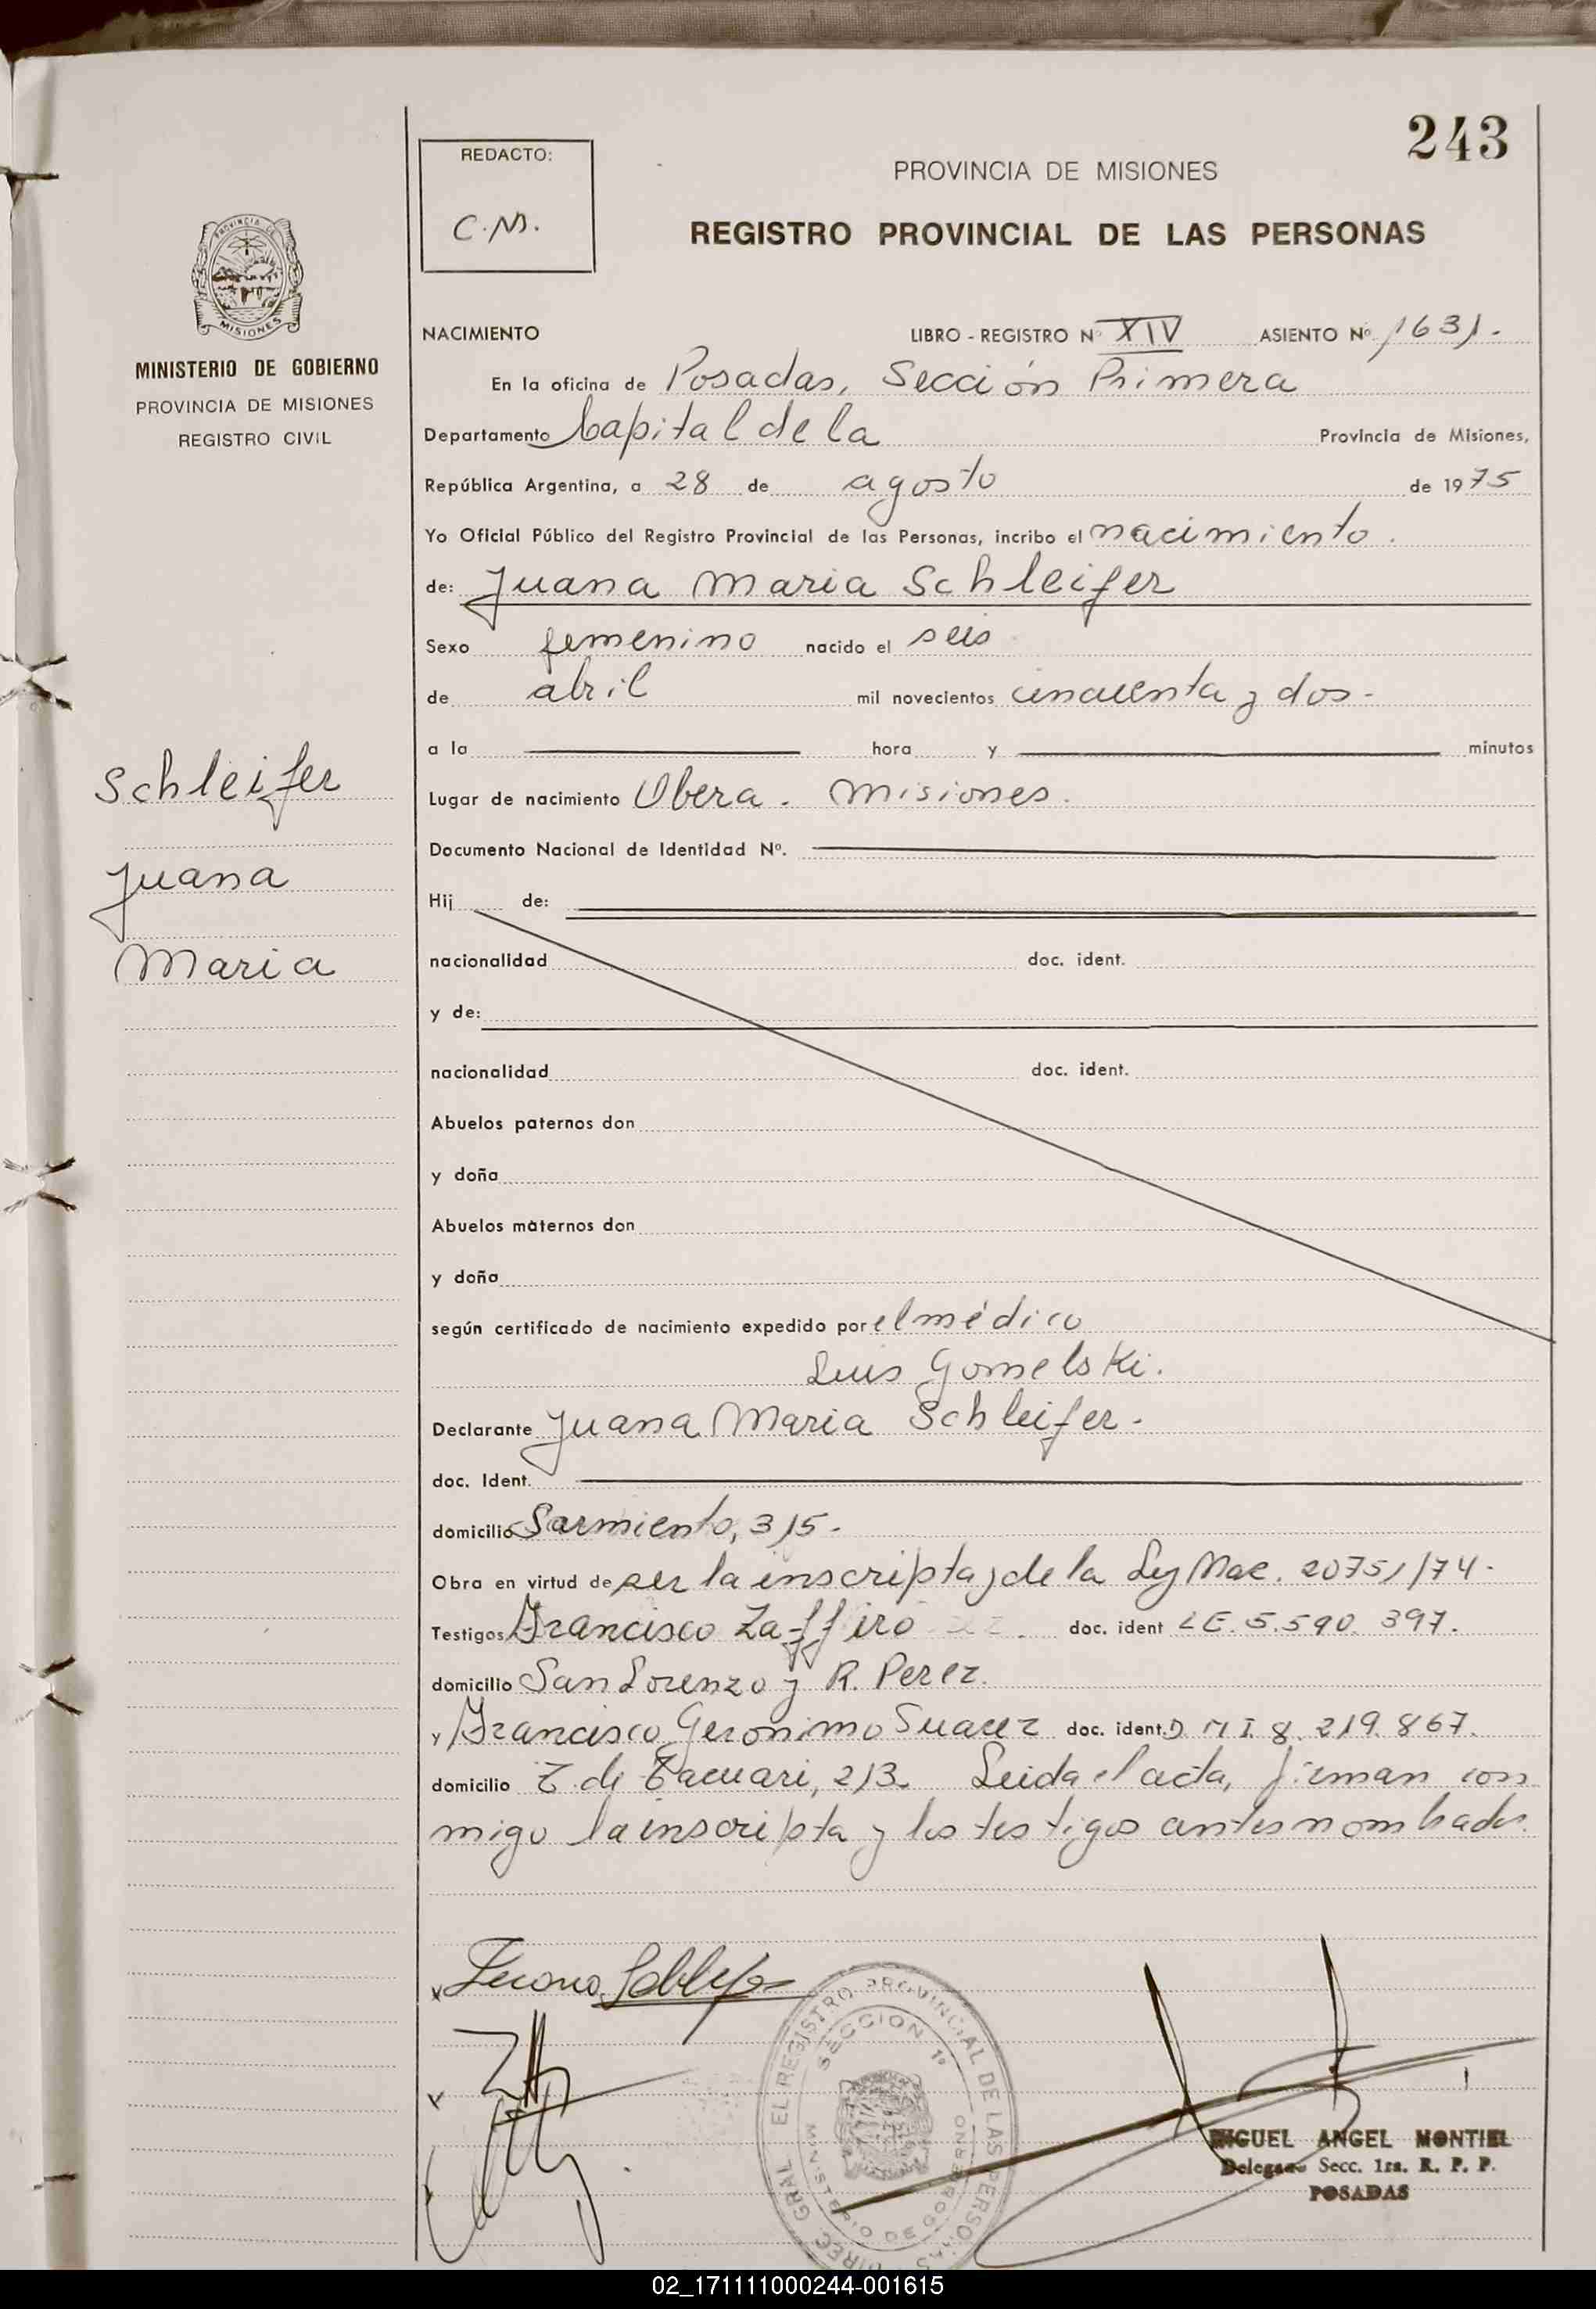 243
REDACTO:
C.M.
PROVINCIA DE MISIONES
REGISTRO PROVINCIAL DE LAS PERSONAS
PROVINCIA DE
MISIONES
MINISTERIO DE GOBIERNO
PROVINCIA DE MISIONES
REGISTRO CIVIL
Schleifer
Juana
Maria
NACIMIENTO LIBRO - REGISTRO Nº XIV ASIENTO Nº 1631.
En la oficina de Posadas, Sección Primera
Departamento Capital de la Provincia de Misiones,
República Argentina, a 28 de agosto de 1975
Yo Oficial Público del Registro Provincial de las Personas, incribo el nacimiento.
de: Juana Maria Schleifer
Sexo femenino nacido el seis
de abril mil novecientos cincuenta y dos-
a la hora y minutos
Lugar de nacimiento Obera. Misiones.
Documento Nacional de Identidad Nº.
Hij de:
nacionalidad doc. ident.
y de:
nacionalidad doc. ident.
Abuelos paternos don
y doña
Abuelos maternos don
y doña
según certificado de nacimiento expedido por el médico
Luis Gomelski.
Declarante Juana Maria Schleifer-
doc. Ident.
domicilio Sarmiento, 315-
Obra en virtud de ser la inscripta y de la Ley Nac. 20751/74-
Testigos Francisco Zaffiro doc. ident LE. 5.590.397.
domicilio San Lorenzo y R. Perez.
y Francisco Geronimo Suarez doc. ident. D.M.I. 8.219.867.
domicilio T. de Tacuari, 213. Leida el acta, firman con
migo la inscripta y los testigos antes nombrados.
DIREC. GRAL. EL REGISTRO PROVINCIAL DE LAS PERSONAS
SECCION 1º
MINISTERIO DE GOBIERNO
MIGUEL ANGEL MONTIEL
Delegado Secc. 1ra. R. P. P.
POSADAS
02_171111000244-001615